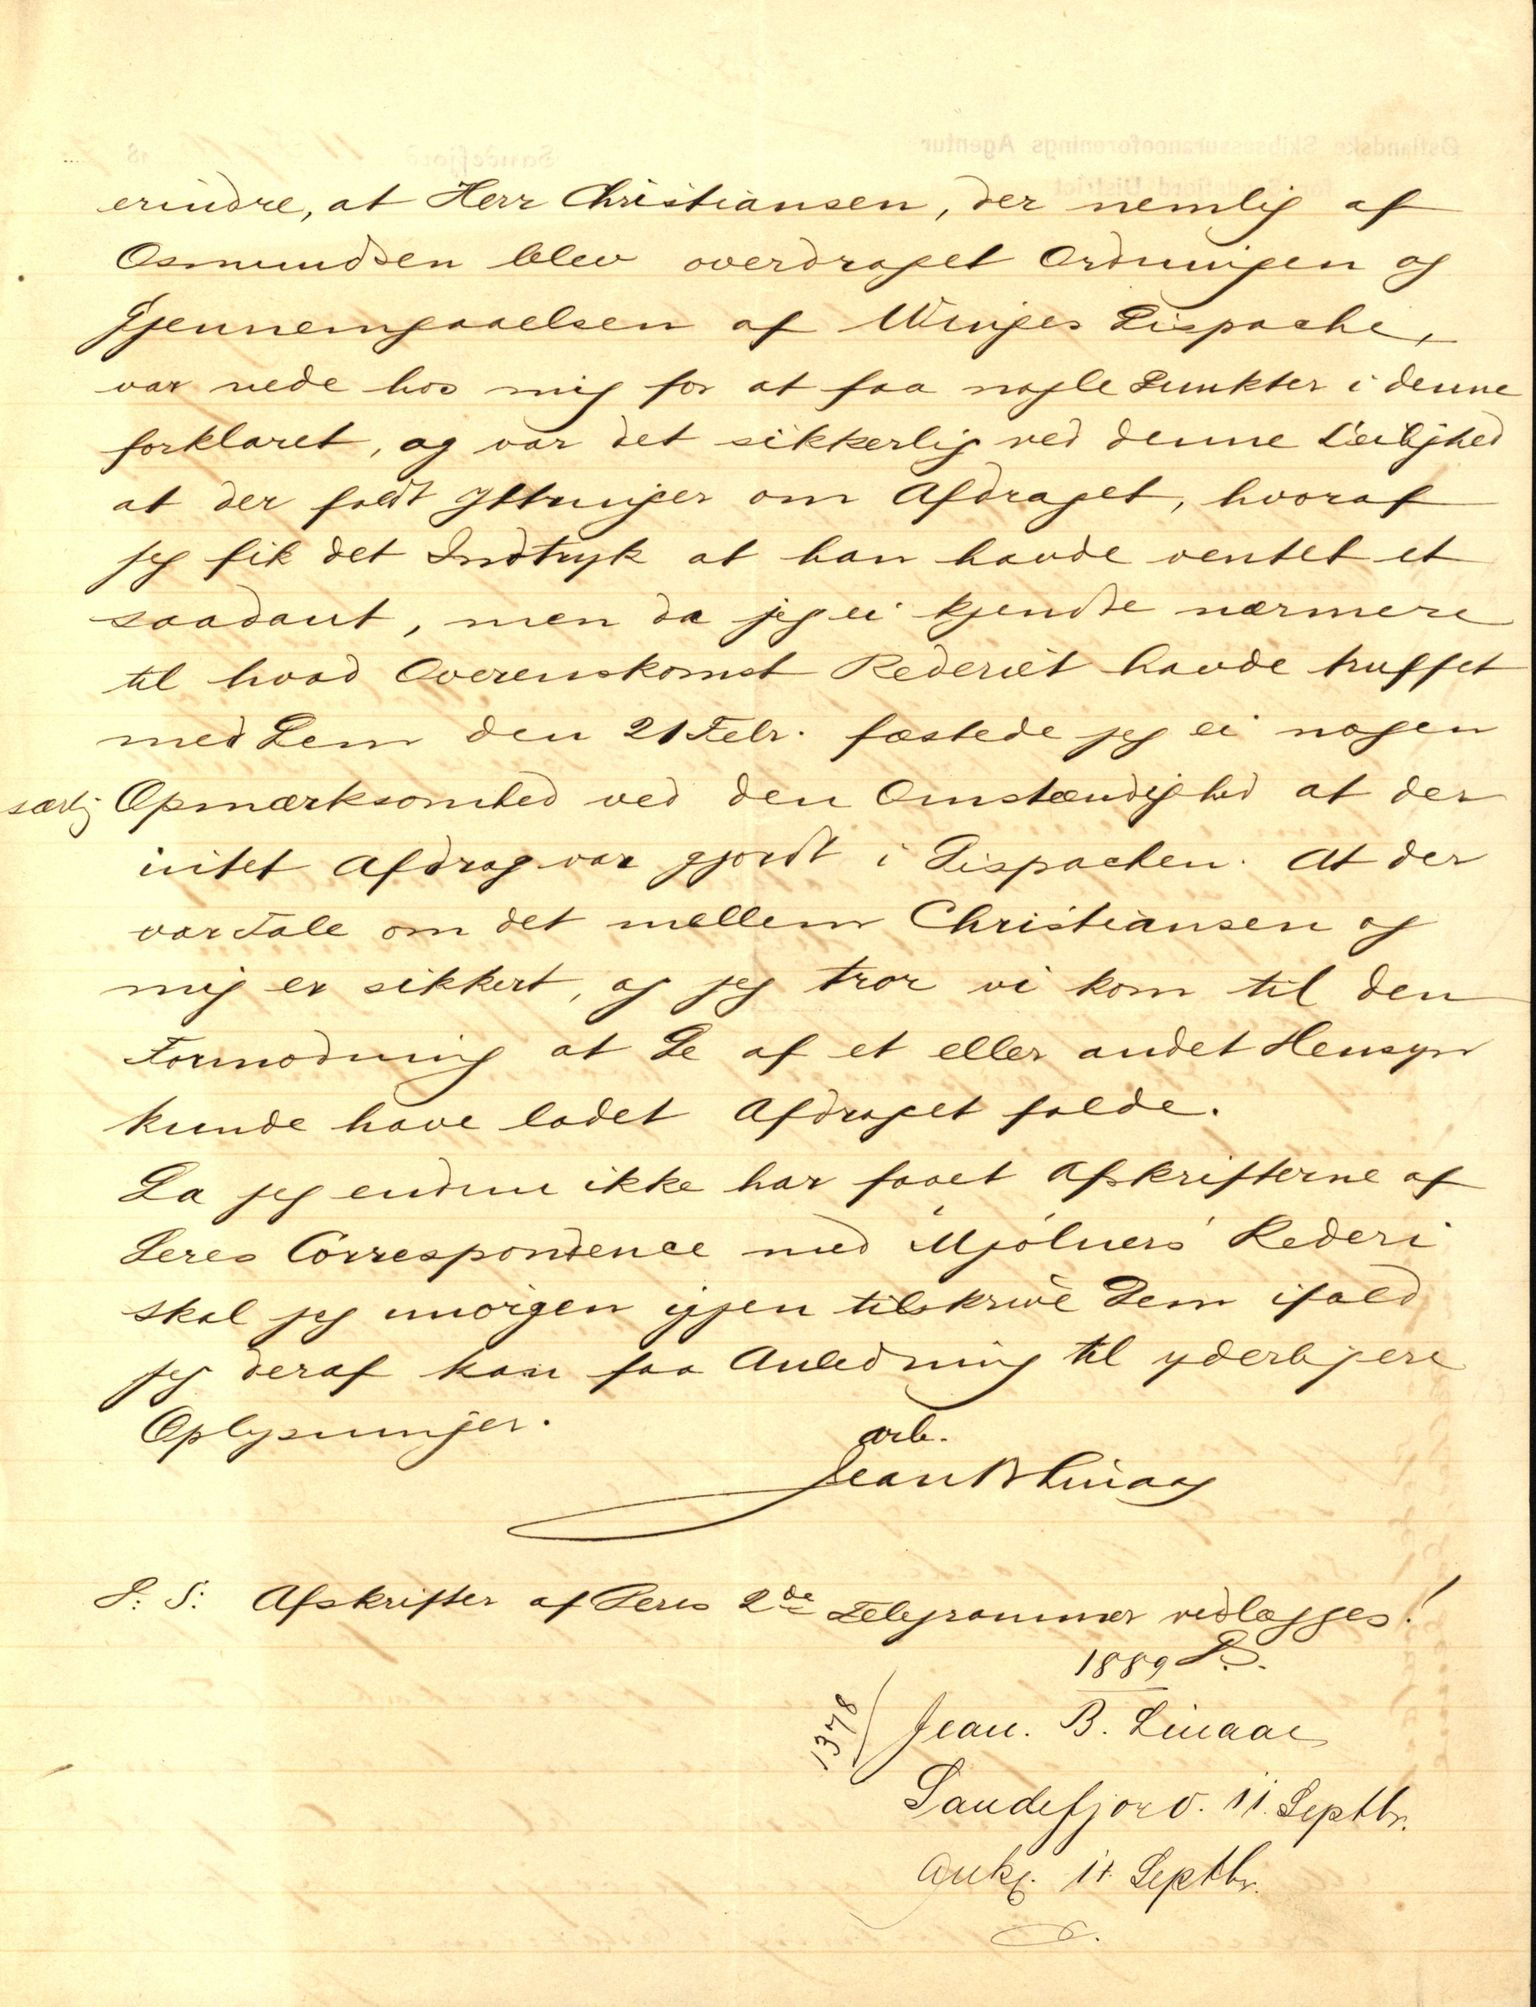 erindre, at Herr Christiansen, der nemlig af
Osmundsen blev overdraget Ordningen og
Gjennemgaaelsen af Winges Dispache,
var nede hos mig for at faa nogle Punkter i denne
forklaret, og var det sikkerlig ved denne Leilighed
at der faldt Yttringer om Afdraget, hvoraf
jeg fik det Indtryk at han havde ventet et
saadant, men da jeg ei kjendte nærmere
til hvad Overenskomst Rederiet havde truffet
med Dem den 21 Febr. fæstede jeg ei nogen
særlig Opmærksomhed ved den Omstændighed at der
intet Afdrag var gjordt i Dispachen. At der
var Tale om det mellem Christiansen og
mig er sikkert, og jeg tror vi kom til den
Formodning at De af et eller andet Hensyn
kunde have ladet Afdraget falde.
Da jeg endnu ikke har faaet Afskrifterne af
Deres Correspondence med "Mjølners" Rederi
skal jeg imorgen igjen tilskrive Dem ifald
jeg deraf kan faa Anledning til yderligere
Oplysninger.
arb.
Jean B Linaae
P: S: Afskrifter af Deres 2de Telegrammer vedlægges!
D.S.
1889
1378
Jean. B. Linaae
Sandefjord. 11. Septbr.
Ank. 14 Septbr.
Østlandske Skibsassuranceforenings Agentur
Sandefjord District
Sandefjord 18